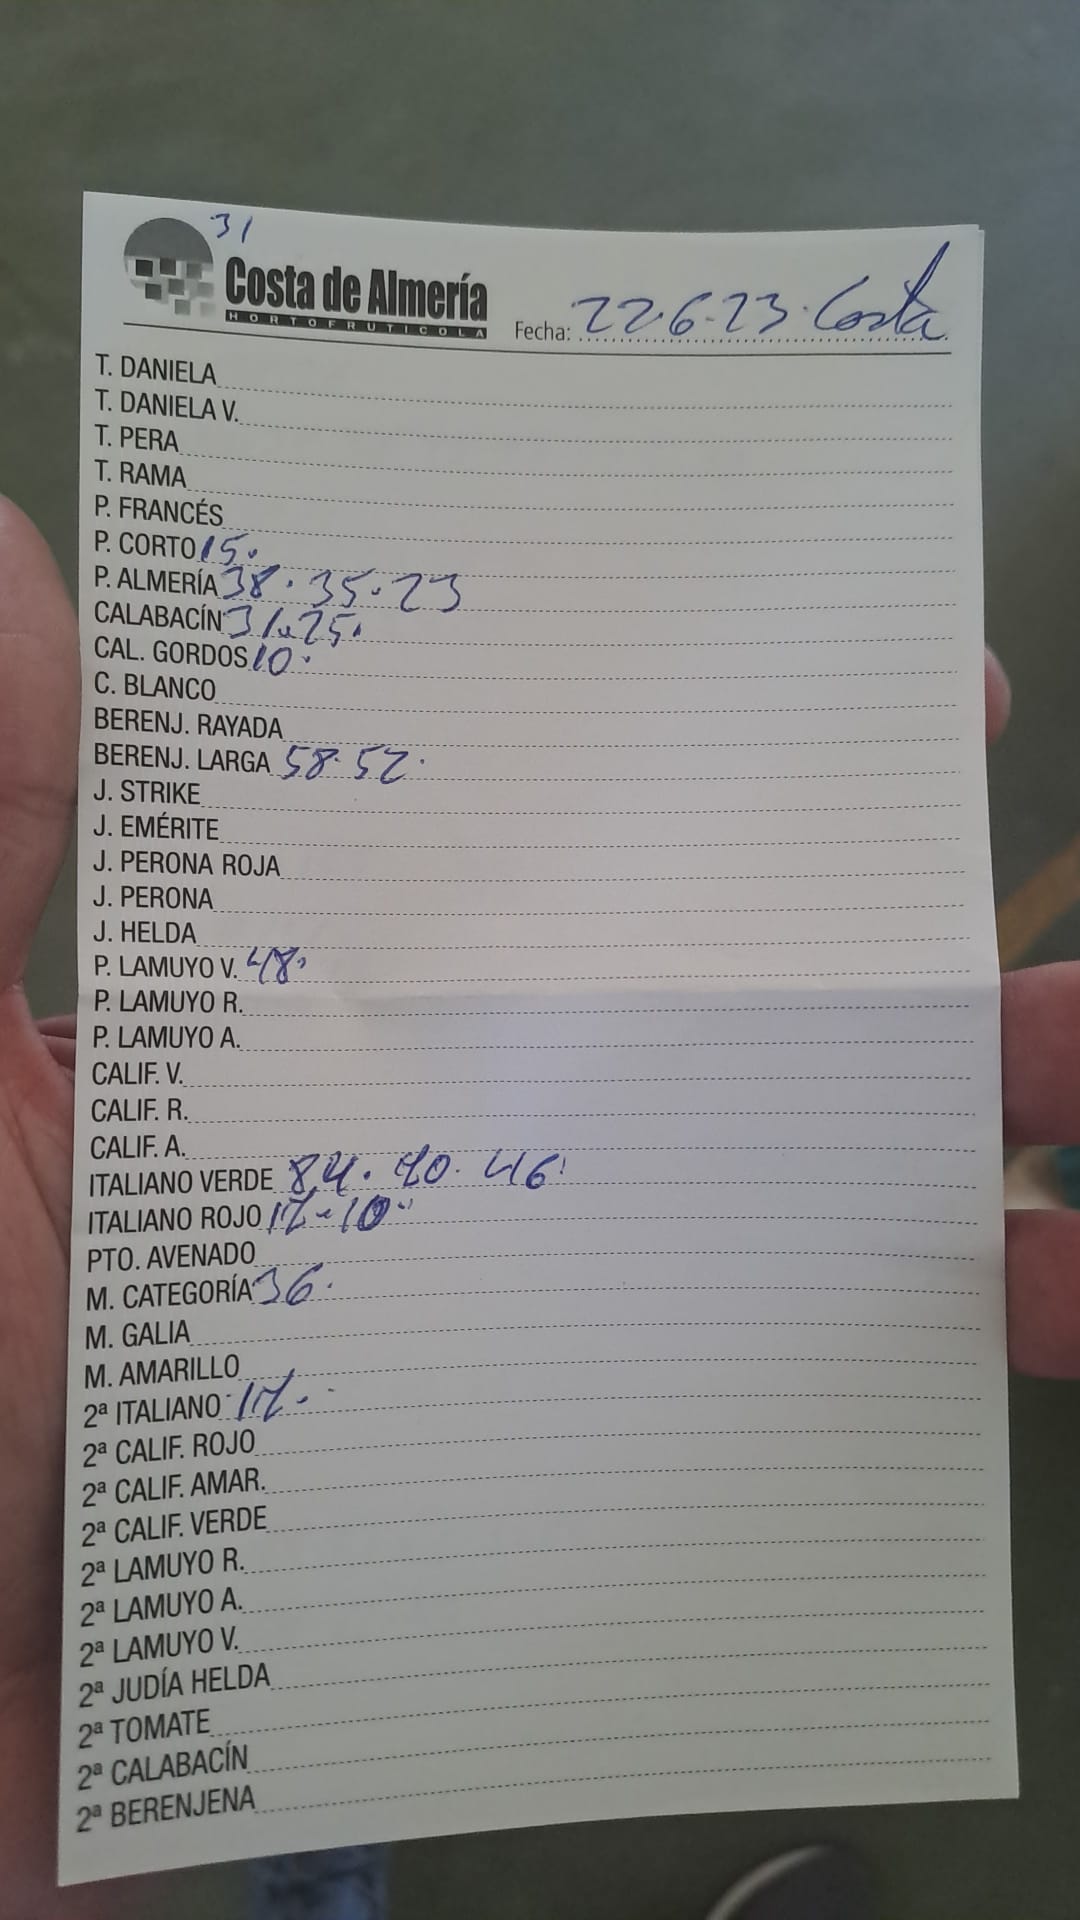 31
Costa de Almería
HORTOFRUTICOLA
Fecha: 22.6.23. Costa
T. DANIELA
T. DANIELA V.
T. PERA
T. RAMA
P. FRANCÉS
P. CORTO 15.
P. ALMERÍA 38. 35. 23
CALABACÍN 31. 25.
CAL. GORDOS 10.
C. BLANCO
BERENJ. RAYADA
BERENJ. LARGA 58. 52.
J. STRIKE
J. EMÉRITE
J. PERONA ROJA
J. PERONA
J. HELDA
P. LAMUYO V. 48.
P. LAMUYO R.
P. LAMUYO A.
CALIF. V.
CALIF. R.
CALIF. A.
ITALIANO VERDE 84. 46.
ITALIANO ROJO 10.
PTO. AVENADO
M. CATEGORÍA 36.
M. GALIA
M. AMARILLO
2ª ITALIANO
2ª CALIF. ROJO
2ª CALIF. AMAR.
2ª CALIF. VERDE
2ª LAMUYO R.
2ª LAMUYO A.
2ª LAMUYO V.
2ª JUDÍA HELDA
2ª TOMATE
2ª CALABACÍN
2ª BERENJENA